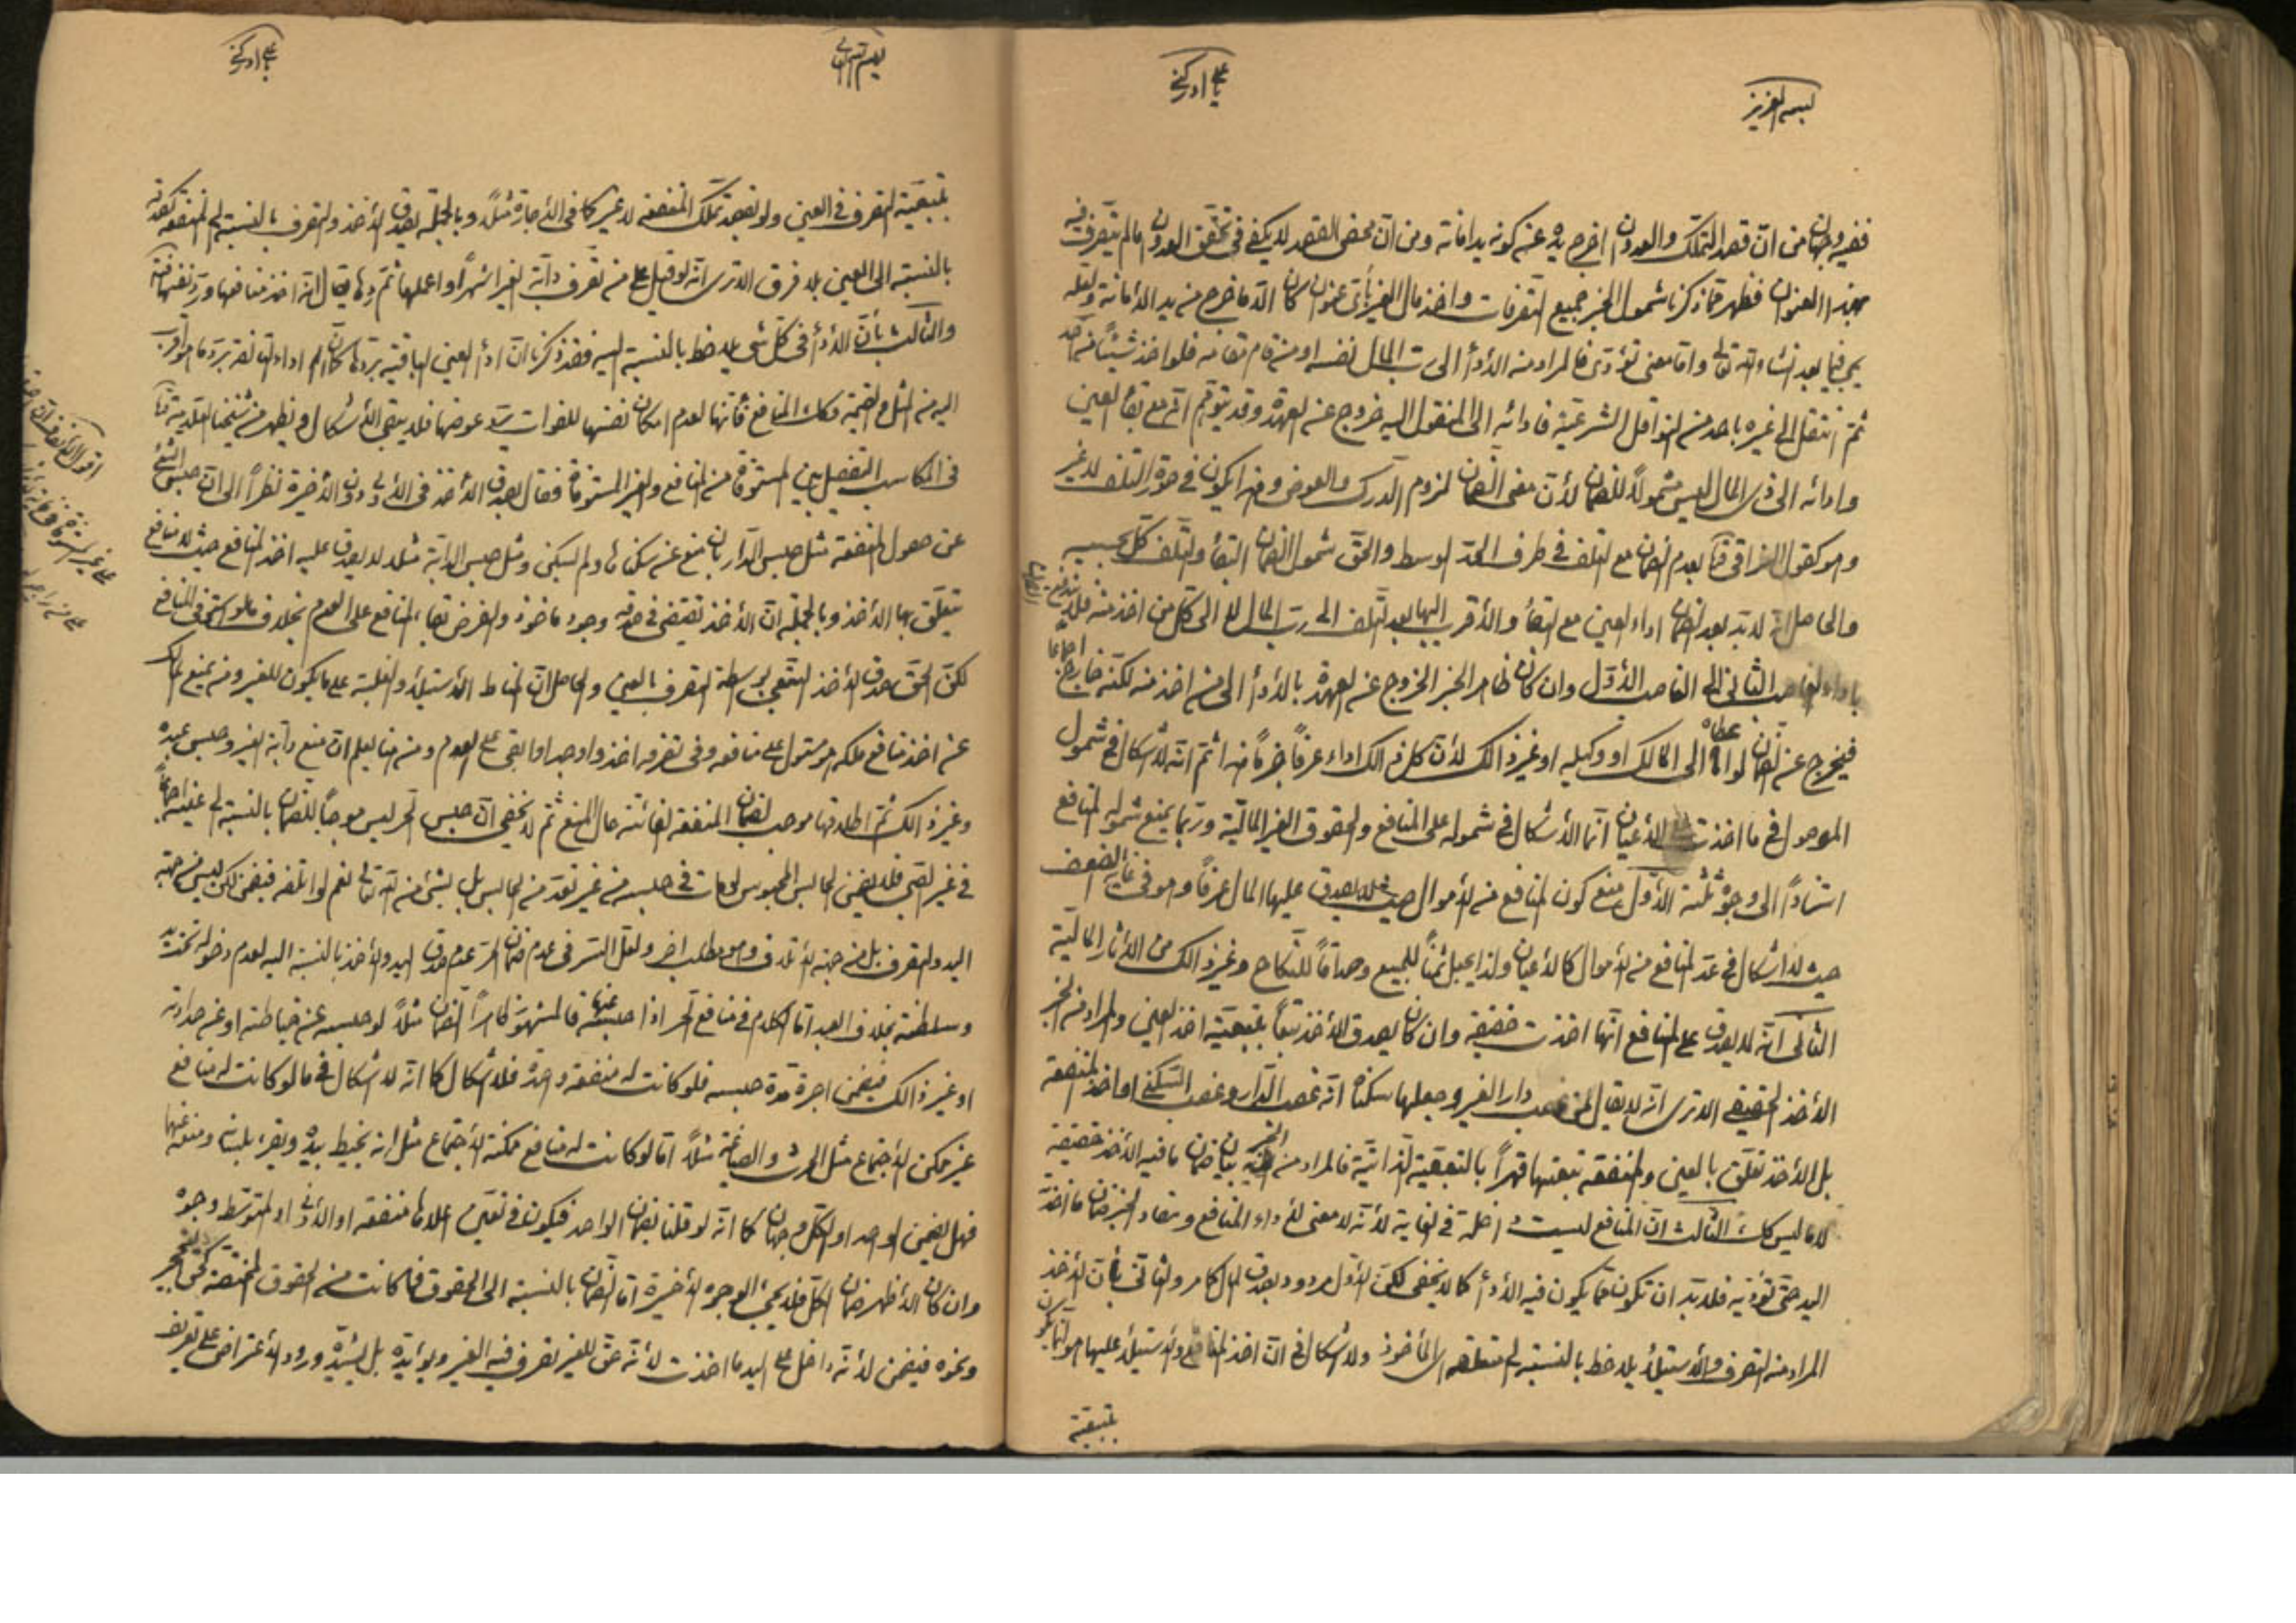 بسمه العزيز
يا علي ادركني
ففيه وجهان من ان قصد التملك والعدوان اخرج يده عن كونه يد امانة ومن ان محض القصد لا يكفي في تحقق العدوان ما لم يتصرف فيه
بهذا العنوان فظهر مما ذكرنا شمول الخبر جميع التصرفات واخذ مال الغير بأي عنوان كان الا ما خرج من يد الأمانة ولعله
يجئ فيما بعد انشاء الله تعالى واما معنى تؤدى فالمراد منه الأداء الى رب المال نفسه او من قام مقامه فلو اخذ شيئاً من احد
ثم انتقل الى غيره باحد من النواقل الشرعية فادائه الى المنقول اليه خروج عن العهدة وقد يتوهم انه مع بقاء العين
وادائه الى ذي المال ليس مشمولاً للضمان لأن معنى الضمان لزوم الدرك والعوض وهذا يكون في صورة التلف لا غير
وهو كقول العراقي بعدم الضمان مع التلف في طرف الحد الوسط والحق شمول الضمان البقاء والتلف كل بحسبه
والحاصل انه لا بد بعد الضمان اداء العين مع البقاء والأقرب اليها بعد التلف الى رب المال لا الى كل من اخذ منه فلا
باداء الغاصب الثاني الى الغاصب الأول وان كان ظاهر الخبر الخروج عن العهدة بالأداء الى من اخذ منه لكنه خارج اجماعا
فيخرج عن الضمان لو اعطاه الى المالك او وكيله او غير ذالك لأن كل ذالك اداء عرفاً خبر هذا ثم انه لا اشكال في شمول
الموصول في ما اخذت للأعيان انما الأشكال في شموله على المنافع والحقوق الغير المالية وربما يمنع شموله المنافع
استناداً الى وجوه ثلثة الأول منع كون المنافع من الأموال حيث لا يصدق عليها المال عرفاً وهو في غاية الضعف
حيث لا اشكال في عد المنافع من الأموال كالأعيان ولذا يجعل ثمناً للمبيع وصداقاً للنكاح وغير ذالك من الآثار المالية
الثاني انه لا يصدق على المنافع انها اخذت حقيقة وان كان يصدق الأخذ تبعاً بتبعية اخذ العين والمراد من الخبر
الأخذ الحقيقي الا ترى انه لا يقال لمن غصب دار الغير وجعلها سكناه انه غصب الدار وغصب السكنى او اخذ المنفعة
بل الأخذ تعلق بالعين والمنفعة تبعتها قهراً بالتبعية الذاتية فالمراد من الخبر بيان ضمان ما فيه الأخذ حقيقة
لا ما ليس كك الثالث ان المنافع ليست داخلة في الغاية لأنه لا معنى لأداء المنافع ومفاد الخبر ضمان ما اخذت
اليد حتى تؤديه فلا بد ان تكون مما يكون فيه الأداء كما لا يخفى لكن الأول مردود بصدق المال كما مر والثاني بأن الأخذ
المراد منه التصرف والأستيلاء يلاحظ بالنسبة الى متعلقه اي المأخوذ ولا اشكال في ان اخذ المنافع والأستيلاء عليها هو انما يكون
بتبعية
يا علي ادركني
بتبعية التصرف في العين ولو بقصد تملك المنفعة لا غير كما في الأجارة مثلاً وبالجملة يصدق الأخذ والتصرف بالنسبة الى المنفعة كصدقه
بالنسبة الى العين بلا فرق الا ترى انه لو قيل على من تصرف دابة الغير اشهراً واعملها ثم ردها يقال انه اخذ منافعها ورد نفسها
والثالث بأن الأداء في كل شئ يلاحظ بالنسبة اليه فقد ذكرنا ان اداء العين الباقية بردها كان ام اداء التالفة برد ما هو اقرب
اليه من المثل والقيمة فكك المنافع فأنها لعدم امكان نفسها للفوات رد عوضها فلا يبقى الأشكال ويظهر من شيخنا العلامة
في المكاسب التفصيل بين المستوفاة من المنافع والغير المستوفاة فقال بصدق الأخذ في الأولى دون الأخيرة نظراً الى ان حبس الشئ
عن حصول المنفعة مثل حبس الدار بان منع عن سكناها ولم يسكن ومثل حبس الدابة مثلا لا يصدق عليه اخذ المنافع حيث لا منافع
يتعلق بها الأخذ وبالجملة ان الأخذ يقتضي في صدقه وجود مأخوذ والفرض بقاء المنافع على العدم بخلاف ما لو استوفى المنافع
لكن الحق صدق الأخذ التبعي بواسطة التصرف بالعين والحاصل ان المناط الأستيلاء والغلبة على ما يكون للغير ومن يمنع المالك
عن اخذ منافع ملكه هو مستول على منافعه وفي تصرفه اخذ واوجد او ابقى على العدم ومن هنا يعلم ان منع دابة الغير وحبس عبده
وغير ذالك ثم اطلاقها موجب لضمان المنفعة الفائتة حال المنع ثم لا يخفى ان حبس الحر ليس موجباً للضمان بالنسبة الى عينه اجماعاً
في غير الصبي فلا يضمن الحابس المحبوس لو مات في حبسه من غير تعد من الحابس بل بشئ من الله تعالى نعم لو اتلفه فيضمن لكن ليس من جهة
اليد والتصرف بل من جهة الأتلاف وهو مطلب اخر ولعل السر في عدم ضمان الحر عدم صدق اليد والأخذ بالنسبة اليه لعدم دخوله تحت يد
وسلطنة بخلاف العبد اما الكلام في منافع الحر اذا حبسه عنها فالمشهور كما مر الضمان مثلاً لو حبسه عن خياطته او عن حدادته
او غير ذالك فيضمن اجرة مدة حبسه فلو كانت له منفعة واحدة فلا اشكال كما انه لا اشكال في ما لو كانت له منافع
غير ممكن الأجتماع مثل الحرث والصياغة مثلاً اما لو كانت له منافع ممكنة الأجتماع مثل انه يخيط بيده ويقرء بلسانه ومنعه عنها
فهل يضمن الواحد او الكل وجهان كما انه لو قلنا بضمان الواحد فيكون في تعيين اعلاها منفعة او الأدنى او المتوسط وجوه
وان كان الأظهر ضمان الكل فلا يجئ الوجوه الأخيرة اما الضمان بالنسبة الى الحقوق فما كانت من الحقوق المختصة كحق التحجير
ونحوه فيضمن لأنه داخل على اليد ما اخذت لأنه حق للغير تصرف فيه الغير ويؤيده بل يشيده ورود الأعتراض على تعريف